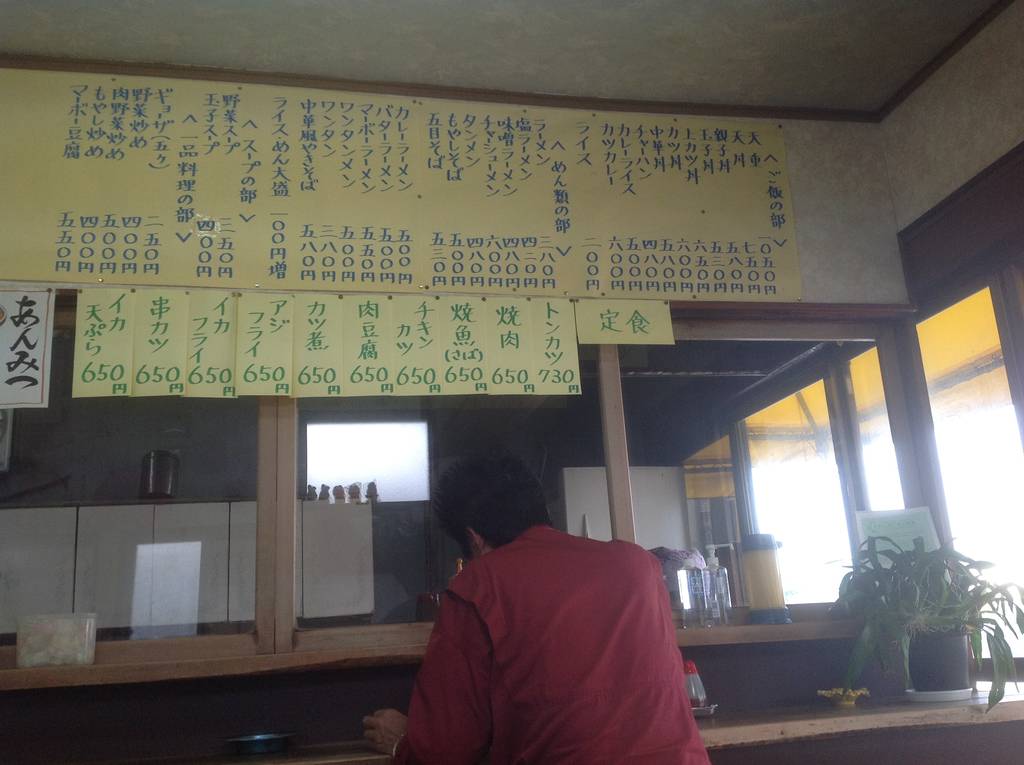 ＜ご飯の部＞
天重 一〇五〇円
天丼 七五〇円
親子丼 五八〇円
玉子丼 五三〇円
上カツ丼 六五〇円
カツ丼 六〇〇円
中華丼 五八〇円
チャーハン 四八〇円
カレーライス 五五〇円
カツカレー 六〇〇円
ライス 二〇〇円
＜めん類の部＞
ラーメン 三八〇円
塩ラーメン 四二〇円
味噌ラーメン 四八〇円
チャシューメン 六〇〇円
タンメン 四八〇円
もやしそば 五〇〇円
五目そば 五三〇円
カレーラーメン 五〇〇円
バターラーメン 五〇〇円
マーボーラーメン 五五〇円
ワンタンメン 五〇〇円
ワンタン 三八〇円
中華風やきそば 五八〇円
ライスめん大盛 一〇〇円増
＜スープの部＞
野菜スープ 三五〇円
玉子スープ 四〇〇円
＜一品料理の部＞
ギョーザ(五ヶ) 二五〇円
野菜炒め 四〇〇円
肉野菜炒め 五〇〇円
もやし炒め 四〇〇円
マーボー豆腐 五五〇円
定食
トンカツ 730円
焼肉 650円
焼魚(さば) 650円
チキンカツ 650円
肉豆腐 650円
カツ煮 650円
アジフライ 650円
イカフライ 650円
串カツ 650円
イカ天ぷら 650円
あんみつ